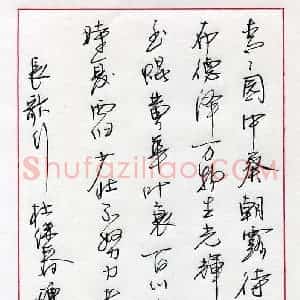 青々園中葵朝露待
布德泽万物生光輝
至焜黄華叶衰百川
時复西归少壮不努力
長歌行 杜
Shufaziliao.COM